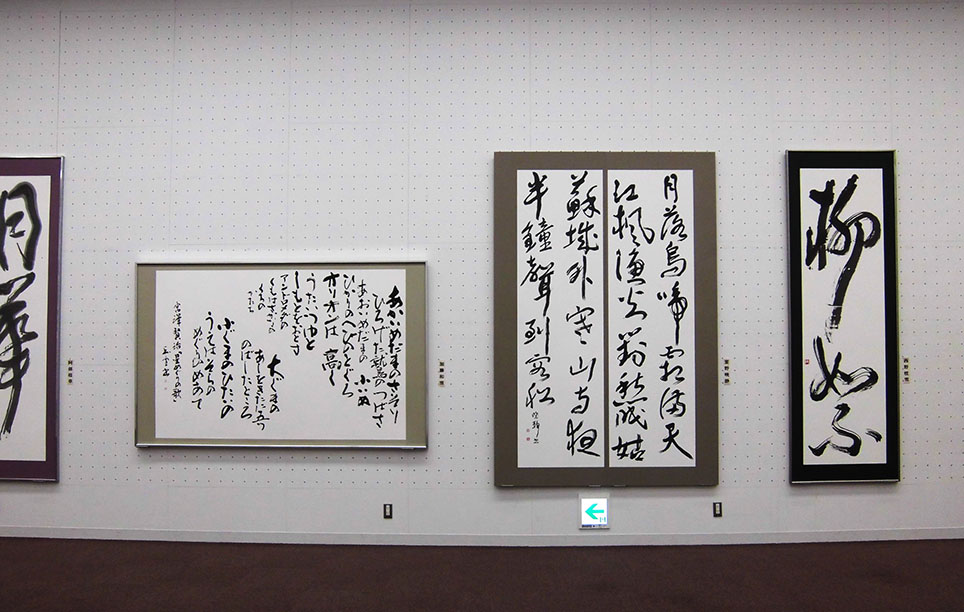 柳如
月落烏啼霜満天
江楓漁火對愁眠姑
蘇城外寒山寺夜
半鐘聲到客船
あかいめだまのさそり
ひろげた鷲のつばさ
あおいめだまの小いぬ
ひかりのへびのとぐろ
オリオンは高く
うたいつゆと
しもとをおとす
アンドロメダの
くもはさかなの
くちの
かたち
大ぐまの
あしをきたに五つ
のばしたところ
小ぐまのひたいの
うえはそらの
めぐりのめあて
宮澤賢治 星めぐりの歌
月華